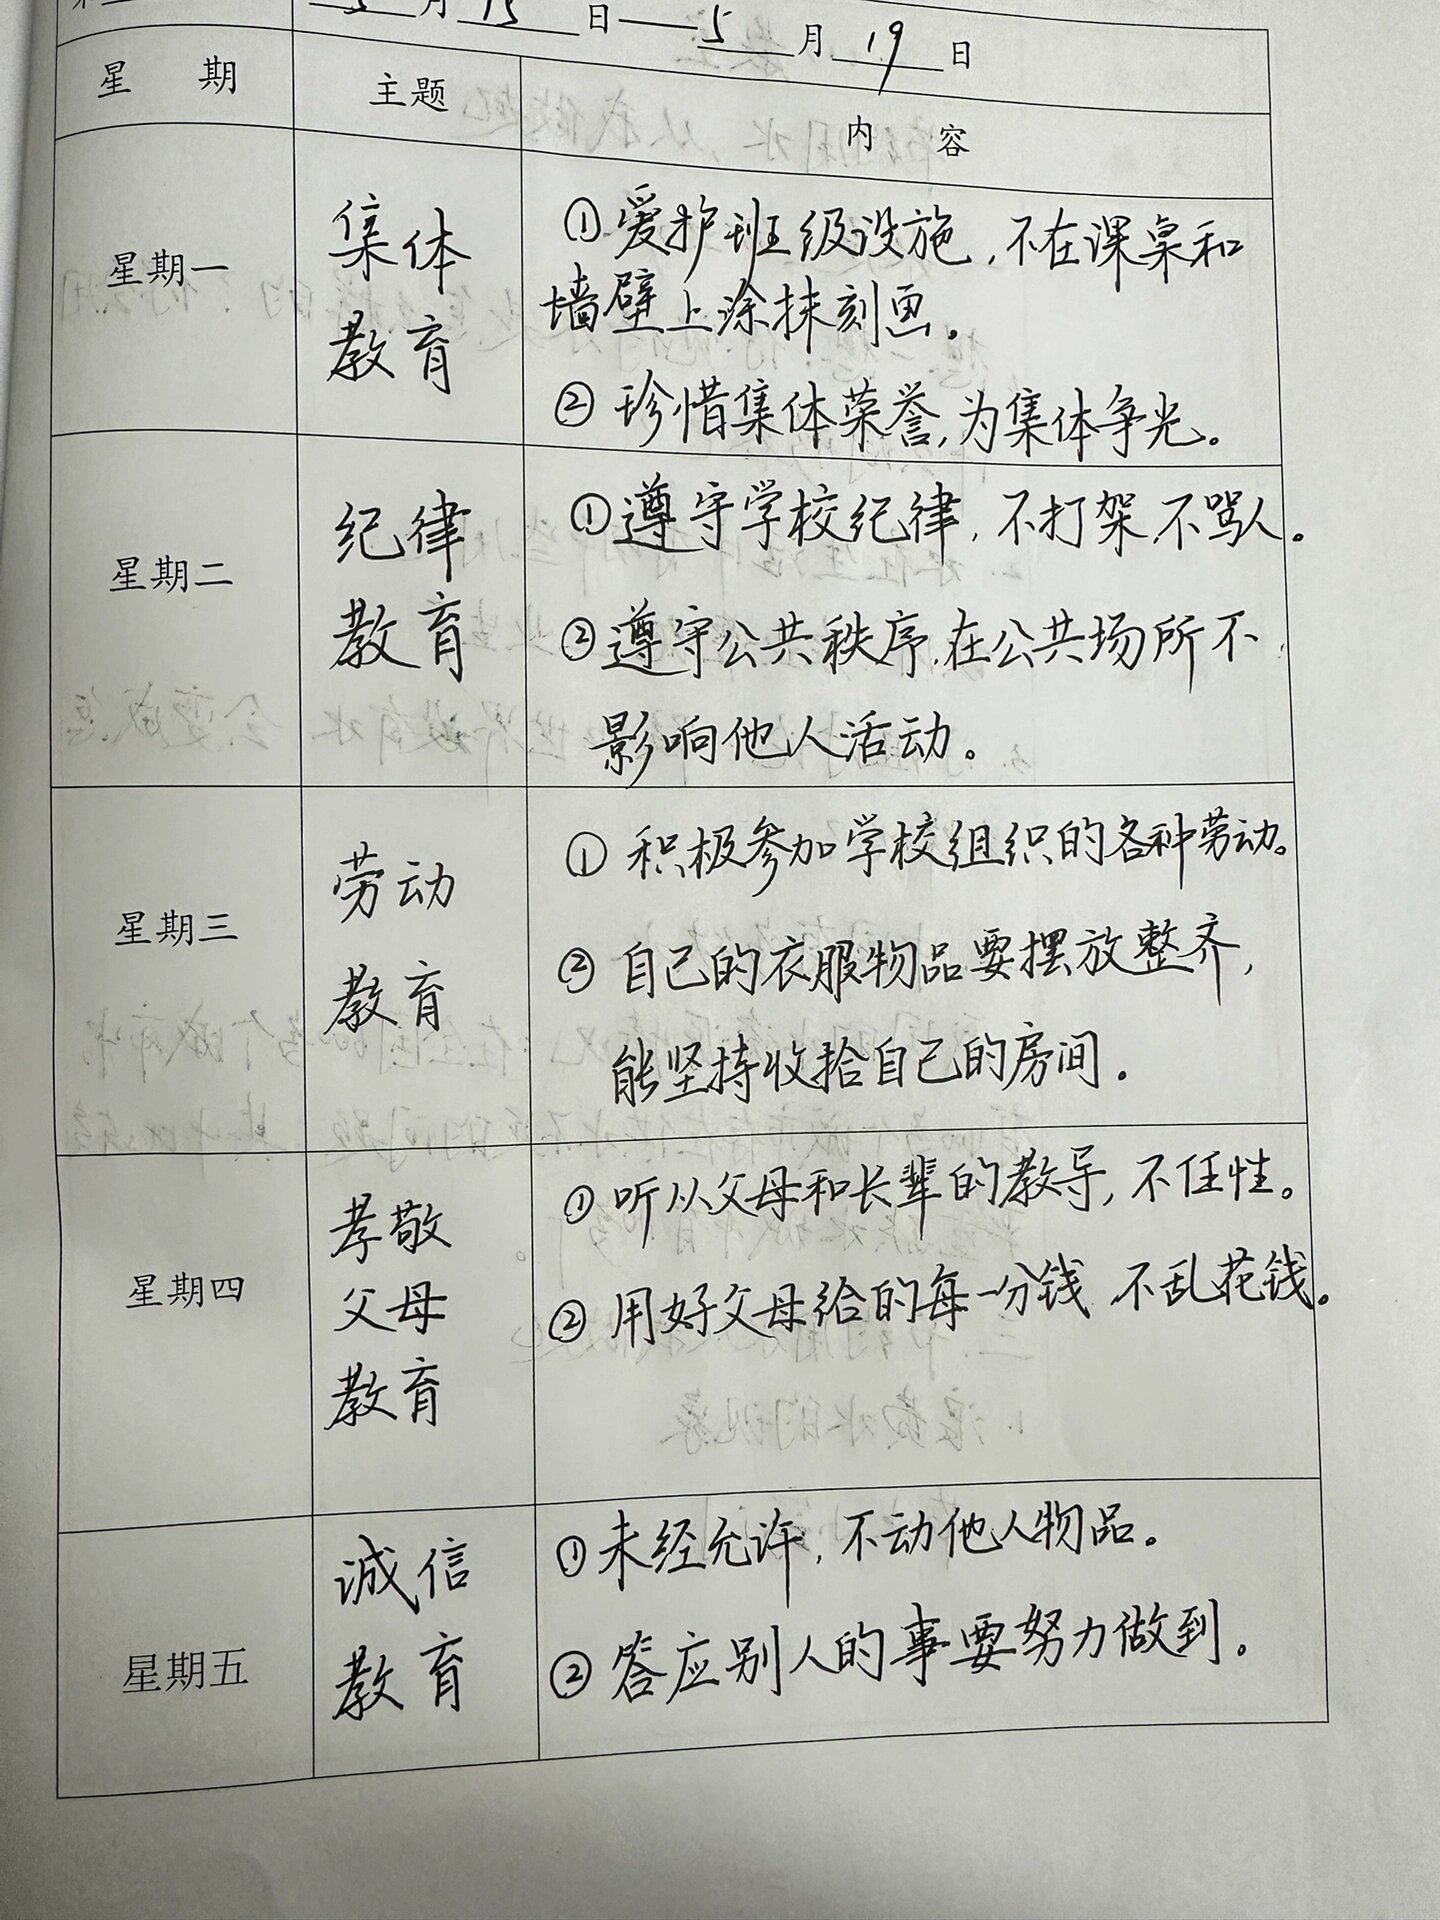 5月15日——5月19日
星 期 主题
内 容
星期一
集体
教育
①爱护班级设施,不在课桌和
墙壁上涂抹刻画。
②珍惜集体荣誉,为集体争光。
星期二
纪律
教育
①遵守学校纪律,不打架,不骂人。
②遵守公共秩序,在公共场所不
影响他人活动。
星期三
劳动
教育
①积极参加学校组织的各种劳动。
②自己的衣服物品要摆放整齐,
能坚持收拾自己的房间.
星期四
孝敬
父母
教育
①听从父母和长辈的教导,不任性。
②用好父母给的每一分钱,不乱花钱。
星期五
诚信
教育
①未经允许,不动他人物品。
②答应别人的事要努力做到。